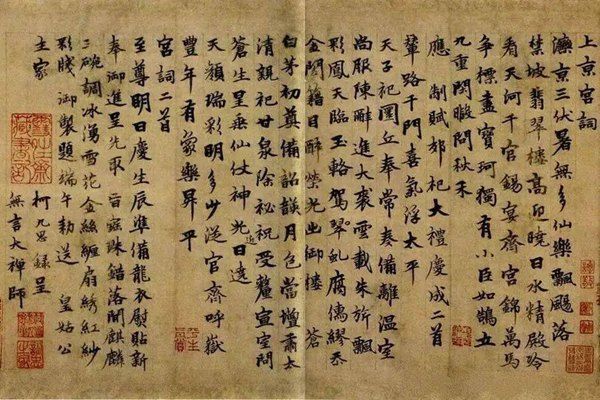 上京宮詞
灤京三伏暑無多仙樂飄颻落
禁坡翡翠樓高迎曉日水精殿冷
看天河千官錫宴齋宮錦萬馬
爭標盡寶珂獨有小臣如鵠立
九重閑暇問秋禾
應制賦郊祀大禮慶成二首
輦路千門喜氣浮太平
天子祀圜丘奉常奏備離溫室
尚服陳辭進大裘雲載朱旂飄
彩鳳天臨玉輅駕翠虬腐儒繆忝
金閨籍日醉榮光出御樓 蒼
白茅初奠備韺月色當壇肅太
清親祀甘泉除祕祝受釐宣室問
蒼生星垂仙仗神光近日遶
天顏瑞彩明多少從官齋呼嶽
豐年有象樂昇平
宮詞二首
至尊明日慶生辰準備龍衣熨貼新
奉御進呈先取旨珠錯落間麒麟
三碗調冰湧雪花金絲纏扇綉紅紗
彩牋御製題端午勑送 皇姑公
主家
柯九思錄呈
無言大禪師